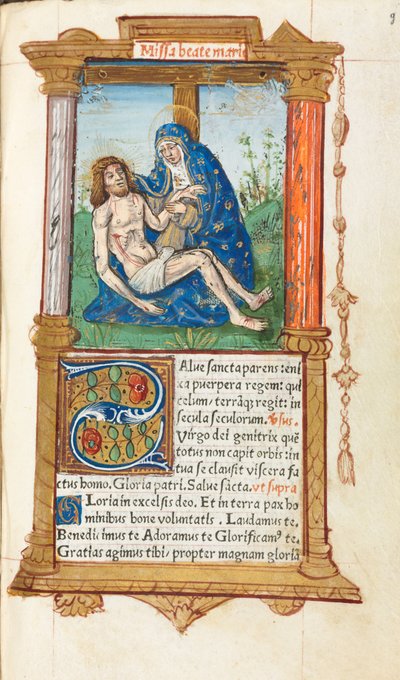 Missa beate marie
Salue sancta parens: eni
xa puerpera regem: qui
celum, terrāq; regit: in
secula seculorum. v̄sus.
Virgo dei genitrix quē
totus non capit orbis: in
tua se clausit viscera fa
ctus homo. Gloria patri. Salue sācta. vt supra
GLoria in excelsis deo. Et in terra pax ho
minibus bone voluntatis. Laudamus te.
Benedicimus te Adoramus te Glorificam⁹ te.
Gratias agimus tibi propter magnam gloriā